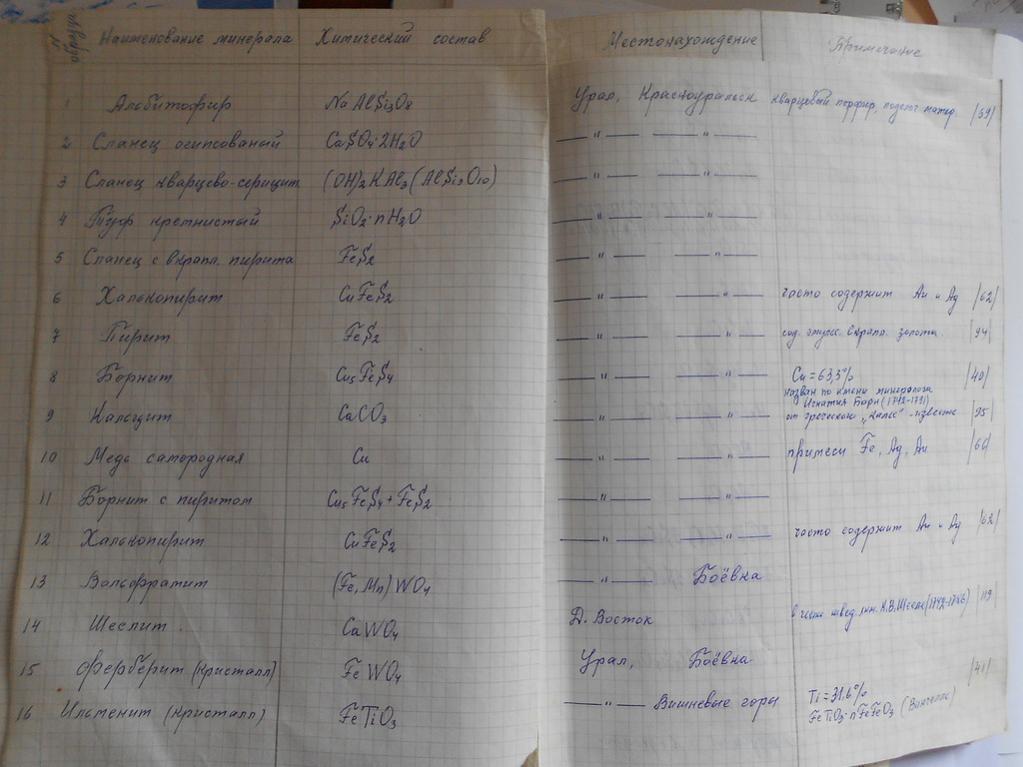 Наименование минерала Химический состав Местонахождение Примечание
1 Альбитофир NaAlSi3O8 Урал, Красноуральск кварцевый порфир,
2 Сланец огипсованый CaSO4·2H2O —"— —"—
3 Сланец кварцево-серицит (OH)2KAl3(AlSi3O10) —"— —"—
4 Туф кремнистый SiO2·nH2O —"— —"—
5 Сланец с вкрапл. пирита FeS2 —"— —"—
6 Халькопирит CuFeS2 —"— —"— часто содержит Au и Ag /62/
7 Пирит FeS2 —"— —"— вкрапл. золота. /94/
8 Борнит Cu5FeS4 —"— —"— Cu=63,3% /40/
назван по имени минеролога
Игнатия Борн (1742-1791)
9 Кальцит CaCO3 —"— —"— от греческого „калс" - известь /95/
10 Медь самородная Cu —"— —"— примеси Fe, Ag, Au /60/
11 Борнит с пиритом Cu5FeS4+FeS2 —"— —"—
12 Халькопирит CuFeS2 —"— —"— часто содержит Au и Ag /62/
13 Вольфрамит (Fe,Mn)WO4 —"— Боёвка
14 Шеелит CaWO4 Д. Восток в честь швед. хим. К.В. Шееле (1742-1786) /119
15 Ферберит (Кристалл) FeWO4 Урал, Боёвка /41/
16 Ильменит (Кристалл) FeTiO3 —"— Вишневые горы Ti=31,6%
FeTiO3·nFeFeO3